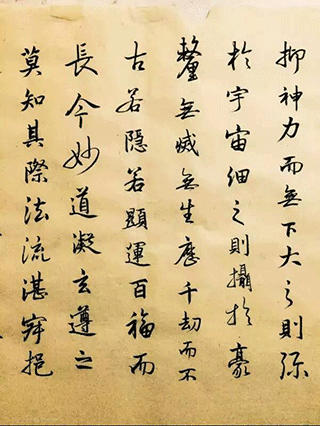 抑神力而無下大之則弥
於宇宙細之則攝於豪
釐無滅無生歷千劫而不
古若隱若顯運百福而
長今妙道凝玄遵之
莫知其際法流湛寂挹